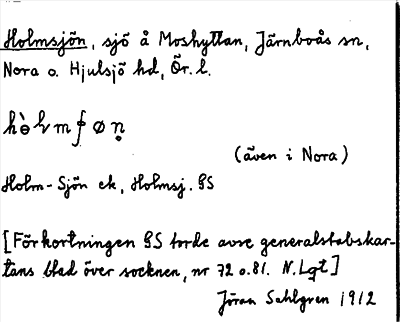 Holmsjön, sjö å Moshyttan, Järnboås sn,
Nora o. Hjulsjö hd, Ör. l.
(även i Nora)
Holm-Sjön ek, Holmsj. GS
[Förkortningen GS torde avse generalstabskar-
tans blad över socknen, nr 72 o. 81. N. Lgt]
Jöran Sahlgren 1912